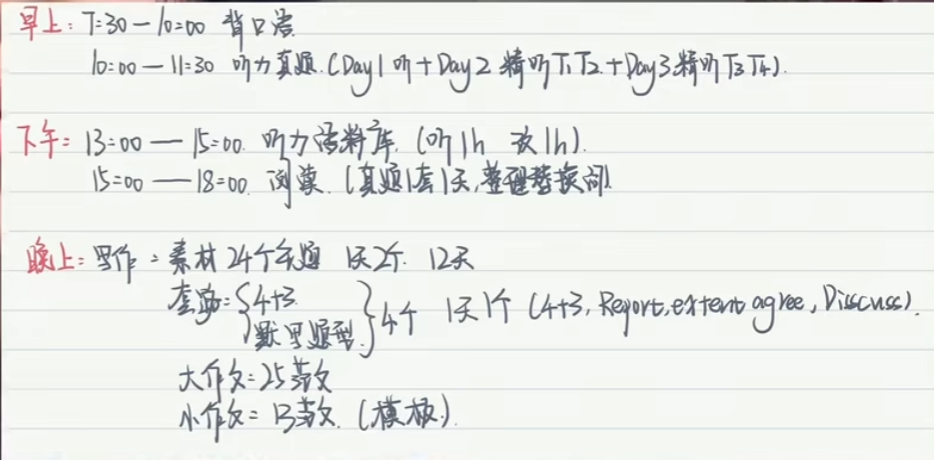 早上: 7:30 — 10:00 背口语
10:00 — 11:30 听力真题. (Day1 听 + Day2 精听T1T2 + Day3精听T3T4).
下午: 13:00 — 15:00. 听力语料库. (听1h 改1h).
15:00 — 18:00. 阅读. (真题1套1天,整理替换词)
晚上: 写作: 素材 24个专题 1天2个. 12天
套路: {4+3.
默写题型.} 4个 1天1个 (4+3, Report, extent agree, Disscuss).
大作文: 25范文
小作文: 13范文. (模板).